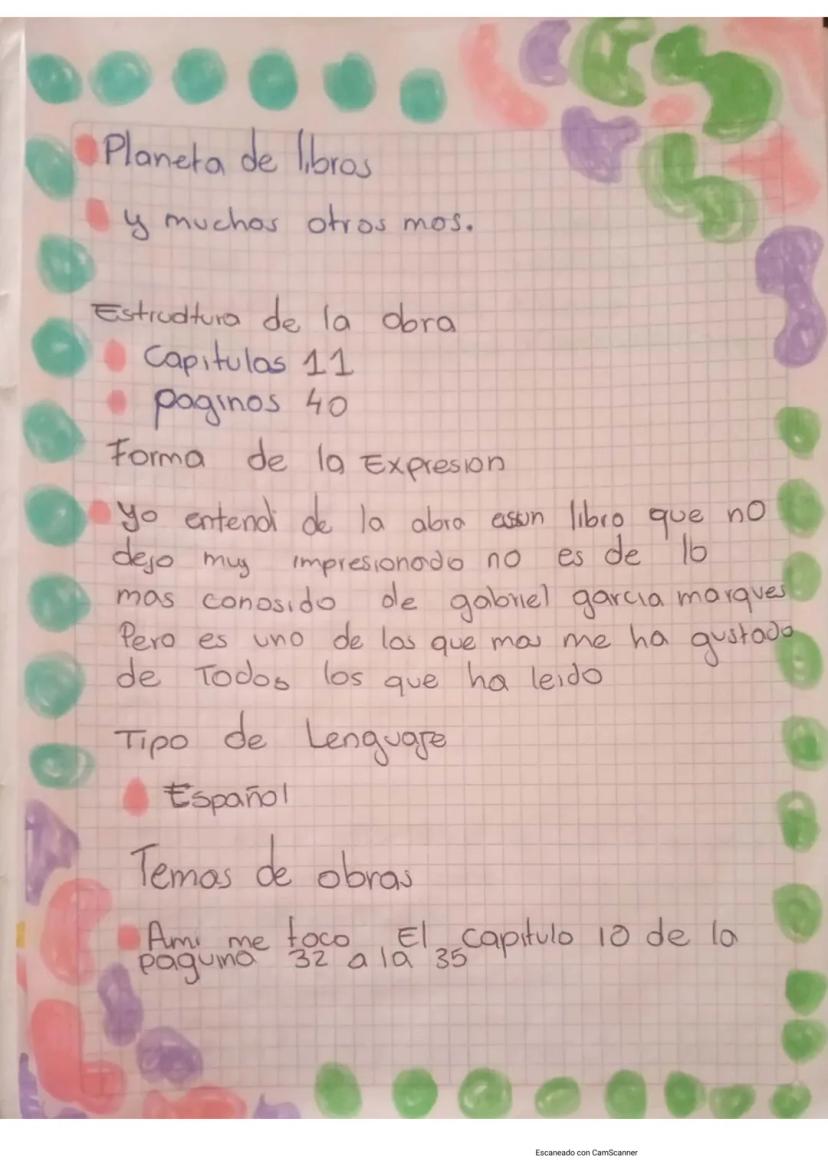 Planeta de libros
y muchos otros mas.
Estrudtura de la obra
Capitulos 11
paginas 40
Forma de la Expresion
yo entendi de la abra esun libro que no
dejo muy impresionado no es de lo
mas conosido de gabriel garcia marques
Pero es uno de los que mas me ha gustado
de Todos los que ha leido
Tipo de Lenguaje
Español
Temas de obras
Ami me toco El capitulo 10 de la
paguina 32 a la 35
Escaneado con CamScanner